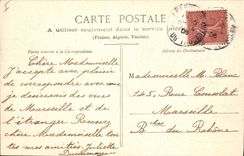 CARTE POSTALE
A utiliser seulement dans le service
(France, Algérie, Tunisie)
Partie réservée à la Correspondance
Adresse du Destinataire
Chère Mademoiselle
J'accepte avec plaisir
de correspondre avec vous
désirerais des cartes
de Marseille et de
l'étranger Recevez
chère Mademoiselle
tes mes amitiés Juliette
Mademoiselle M. Blanc
145, Rue Consolat
Marseille
Bches du Rhône